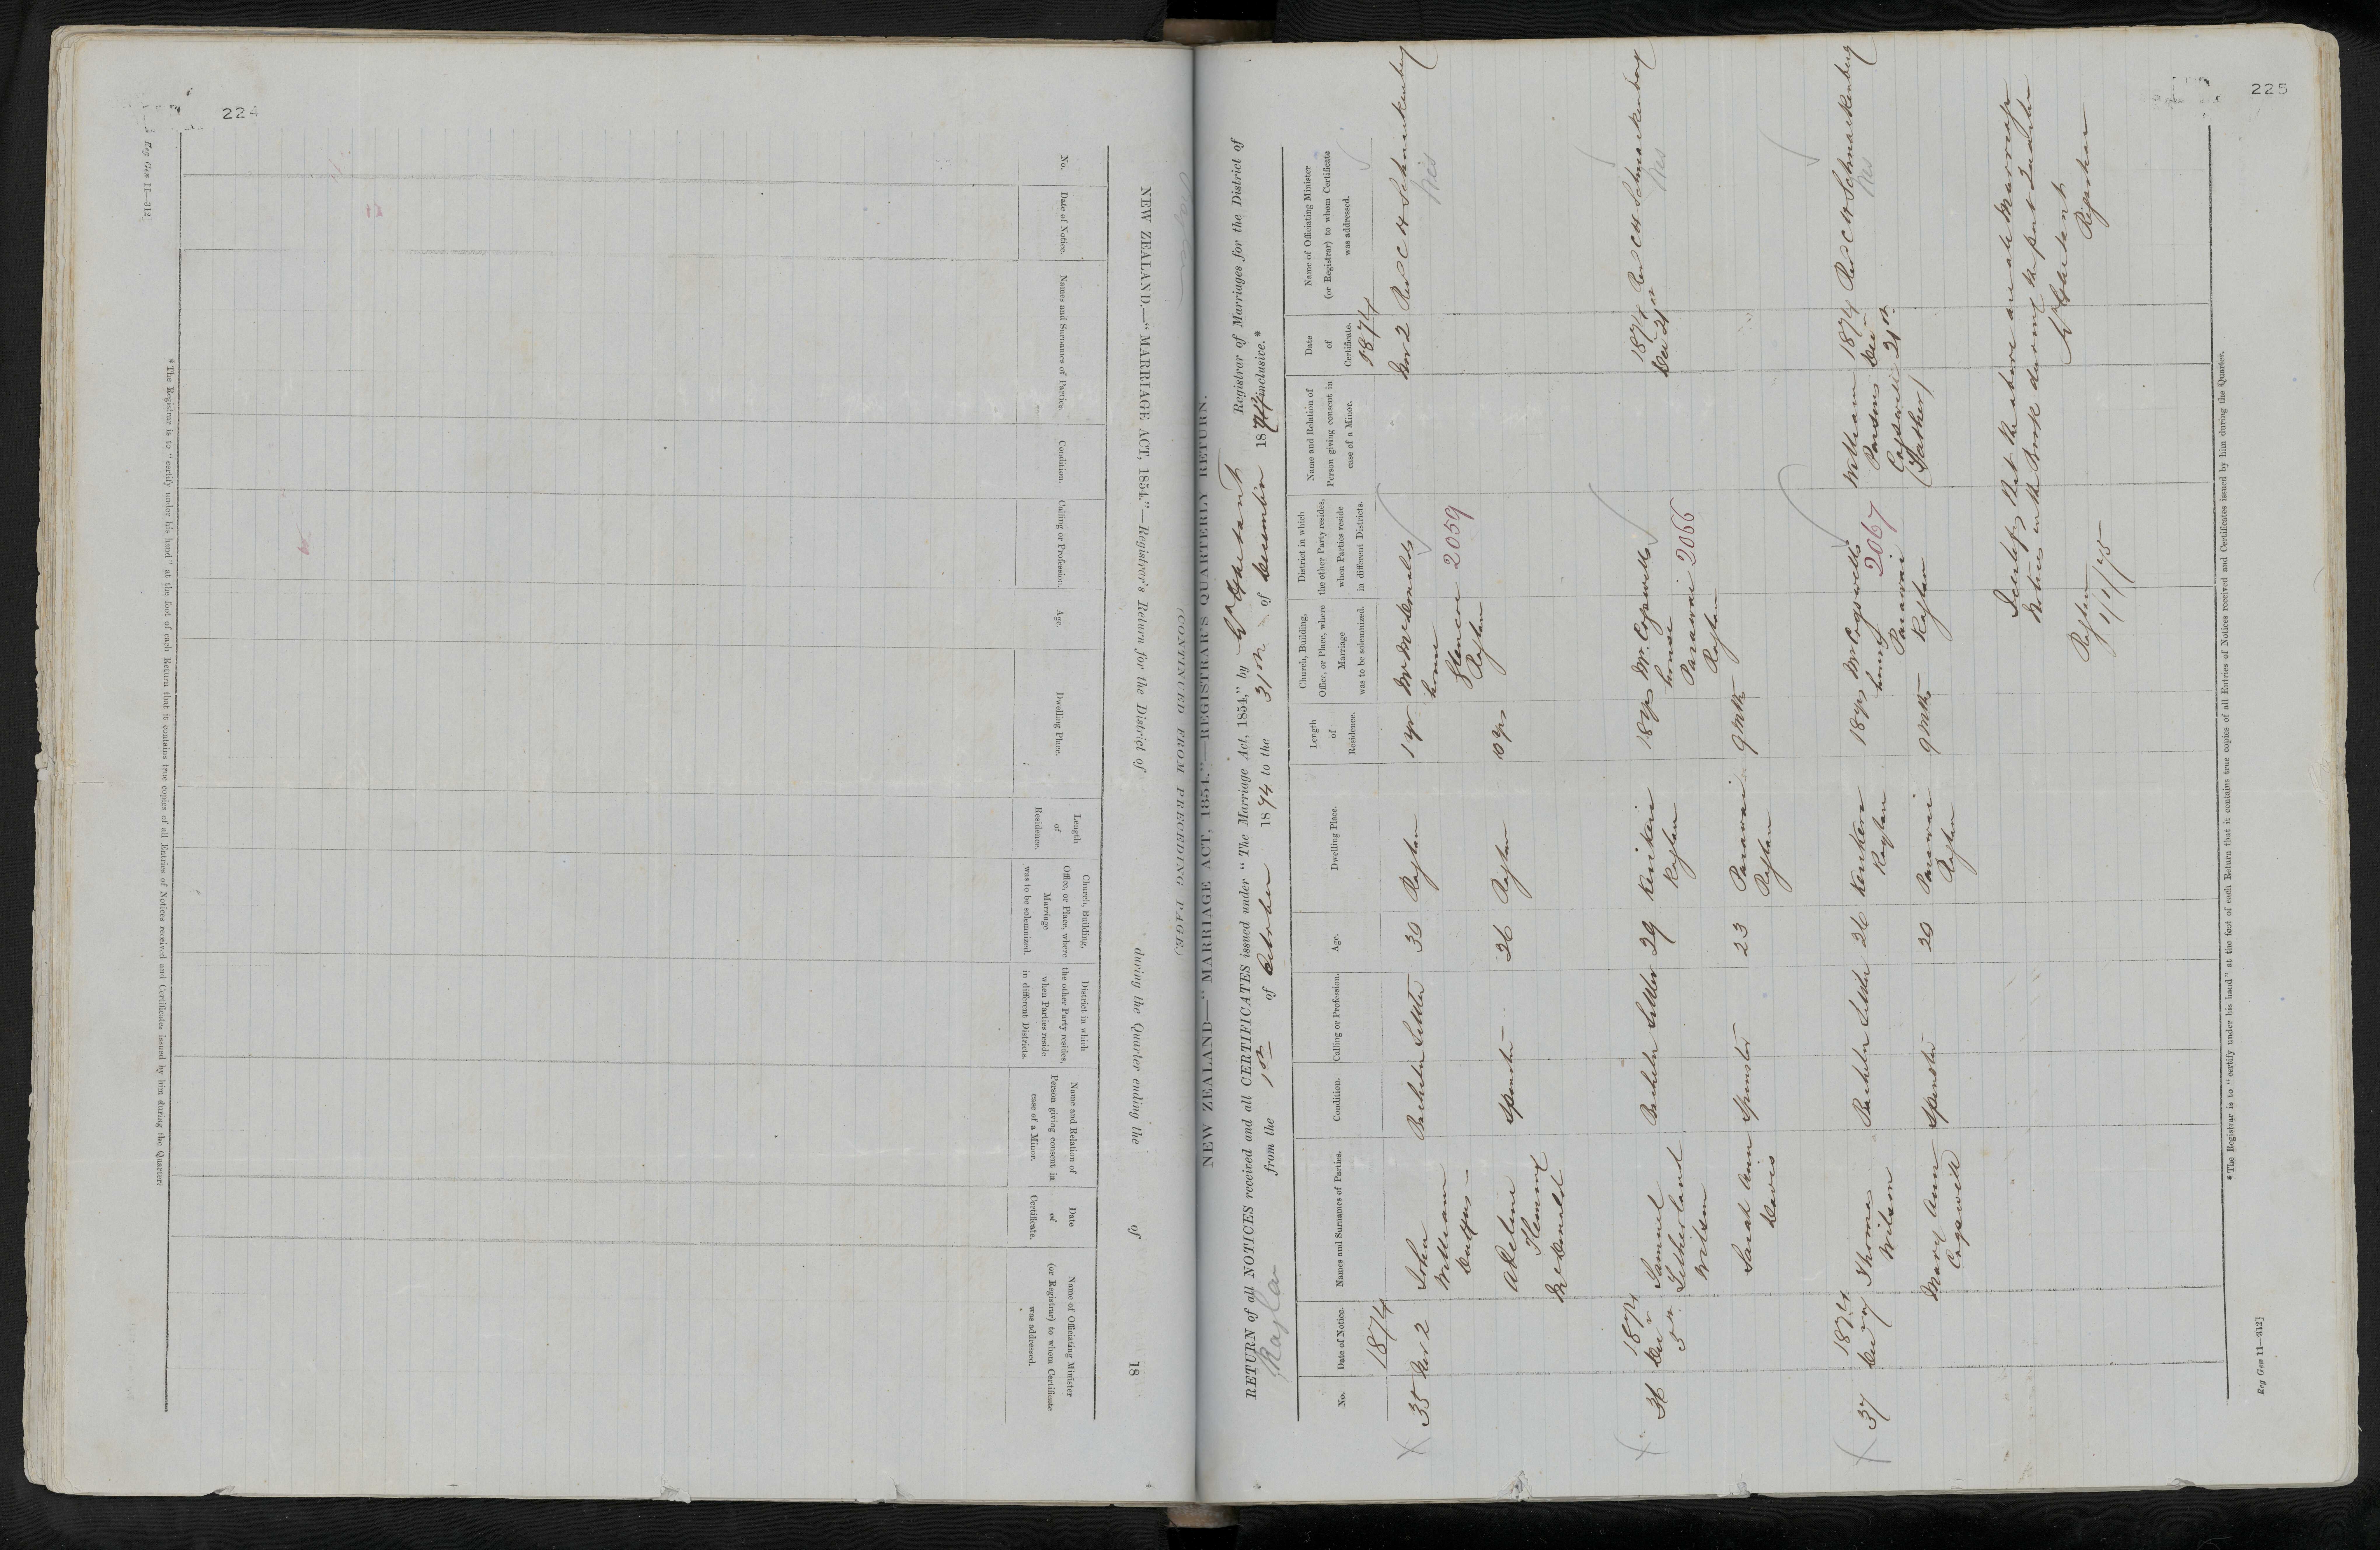 224
Reg Gen 11—312]
NEW ZEALAND.—"MARRIAGE ACT, 1854."—Registrar's Return for the District of during the Quarter ending the of 18
No.
Date of Notice.
Names and Surnames of Parties.
Condition.
Calling or Profession.
Age.
Dwelling Place.
Length of Residence.
Church, Building, Office, or Place, where Marriage was to be solemnized.
District in which the other Party resides, when Parties reside in different Districts.
Name and Relation of Person giving consent in case of a Minor.
Date of Certificate.
Name of Officiating Minister (or Registrar) to whom Certificate was addressed.
*The Registrar is to "certify under his hand" at the foot of each Return that it contains true copies of all Entries of Notices received and Certificates issued by him during the Quarter.
225
(CONTINUED FROM PRECEDING PAGE.)
NEW ZEALAND—"MARRIAGE ACT, 1854."—REGISTRAR'S QUARTERLY RETURN.
RETURN of all NOTICES received and all CERTIFICATES issued under "The Marriage Act, 1854," by Registrar of Marriages for the District of
Raglan from the 1st of October 1874 to the 31st of December 1874 inclusive.*
No.
Date of Notice.
Names and Surnames of Parties.
Condition.
Calling or Profession.
Age.
Dwelling Place.
Length of Residence.
Church, Building, Office, or Place, where Marriage was to be solemnized.
District in which the other Party resides, when Parties reside in different Districts.
Name and Relation of Person giving consent in case of a Minor.
Date of Certificate.
Name of Officiating Minister (or Registrar) to whom Certificate was addressed.
1874
1874
35 Nov 2 John William Bachelor Settler 30 Raglan 1 yr Mr McDonalds house Raglan 2059 Nov 2 Rev C H Schnackenberg
Yes
Adeline Flemming McDonald Spinster 26 Raglan 10 yrs
36 1874 Dec 5th Samuel Wilson Bachelor Settler 29 Kerikeri Raglan 18 yrs Mr. Cogswells house Parawai Raglan 2066 1874 Dec 21st Rev C H Schnackenberg
Yes
Sarah Ann Davis Spinster 23 Parawai Raglan 9 Mths
37 1874 Dec Thomas Wilson Bachelor Settler 26 Raglan 18 yrs Mr Cogswells house Parawai Raglan 2067 William Cogswell (Father) 1874 Dec 21st Rev C H Schnackenberg
Yes
Mary Ann Cogswell Spinster 20 Parawai Raglan 9 Mths
I certify that the above are all Marriage
Notices in the Book during the past Quarter
Registrar
Raglan
1/1/75
*The Registrar is to "certify under his hand" at the foot of each Return that it contains true copies of all Entries of Notices received and Certificates issued by him during the Quarter.
Reg Gen 11—312]